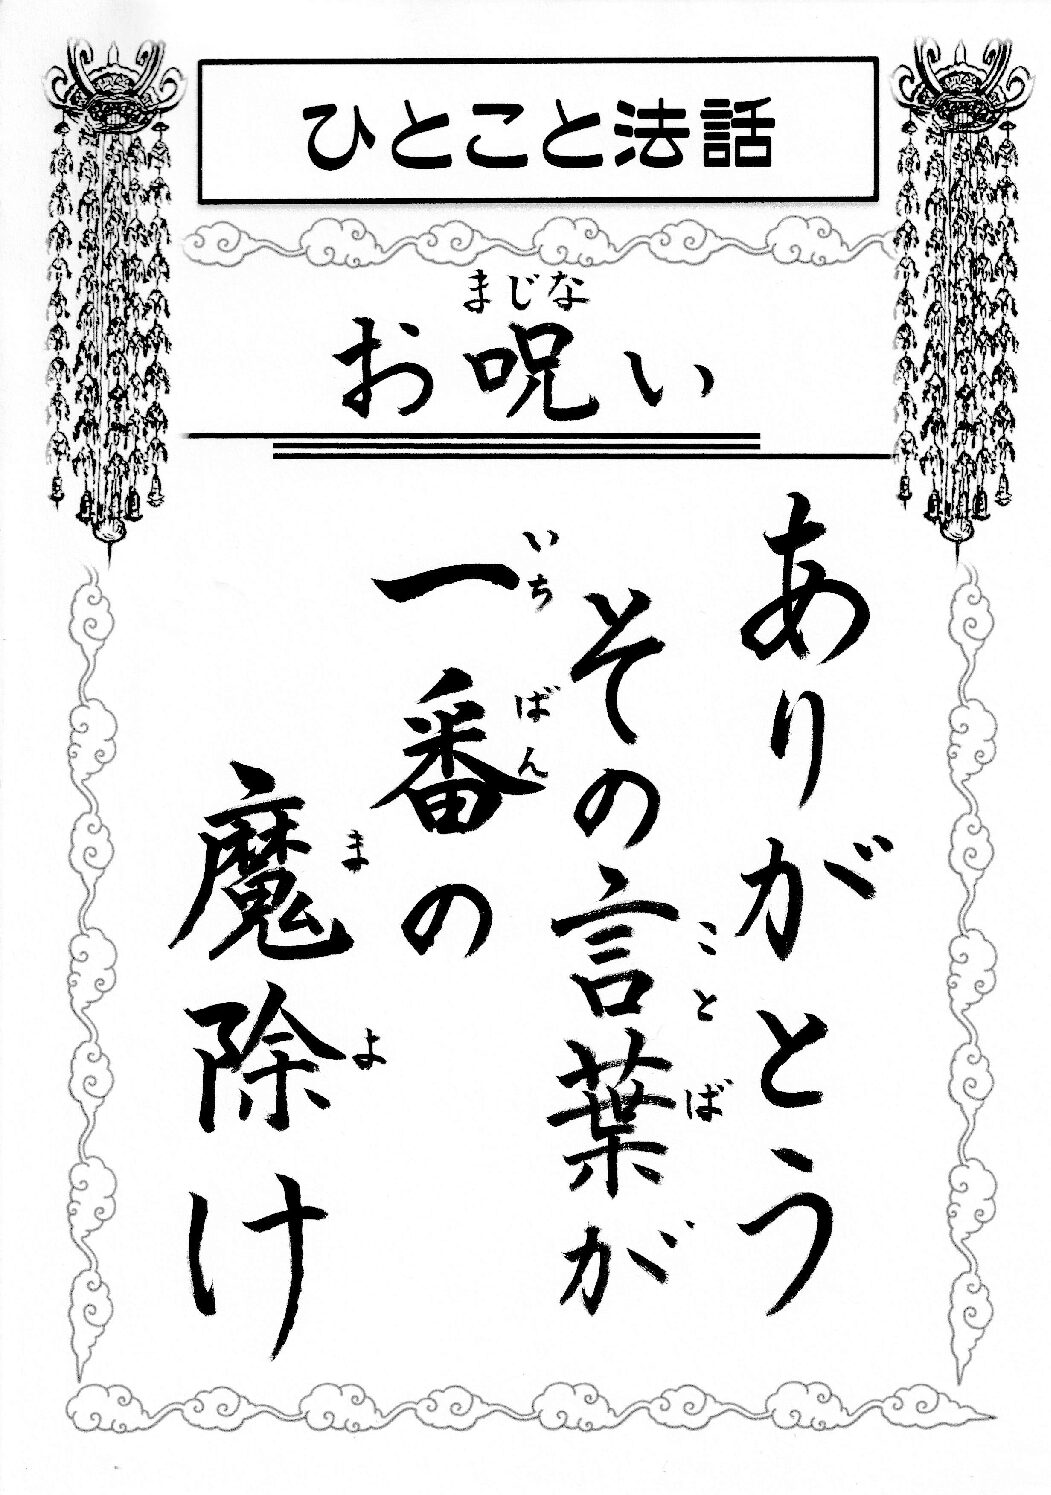 ひとこと法話
まじな
お呪い
ありがとう
その言葉が
ことば
一番の
いちばん
魔除け
まよ